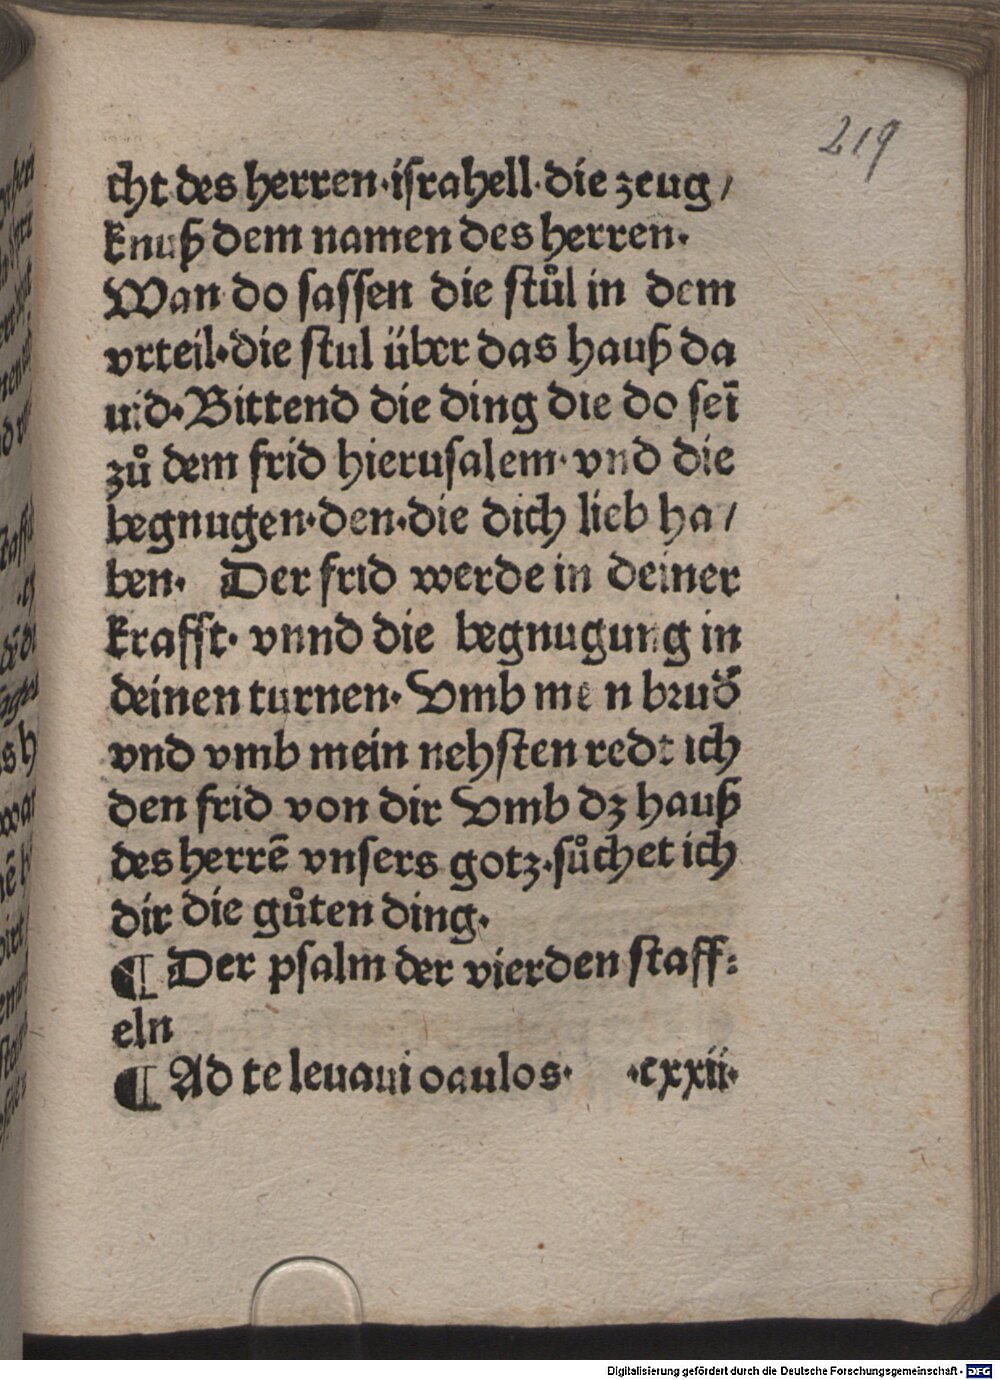 219
cht des herren·israhell·die zeug/
knuß dem namen des herren·
Wan do sassen die stůl in dem
vrteil·die stul über das hauß da
uid·Bittend die ding die do seī
zů dem frid hierusalem·vnd die
begnugen·den·die dich lieb ha/
ben· Der frid werde in deiner
krafft· vnnd die begnugung in
deinen turnen· Vmb mein brud̓
vnd vmb mein nehsten redt ich
den frid von dir Vmb dz hauß
des herrē vnsers gotz·sůchet ich
dir die gůten ding·
¶ Der psalm der vierden staff:
eln
¶ Ad te leuaui oculos· ·cxxii·
Digitalisierung gefördert durch die Deutsche Forschungsgemeinschaft - DFG